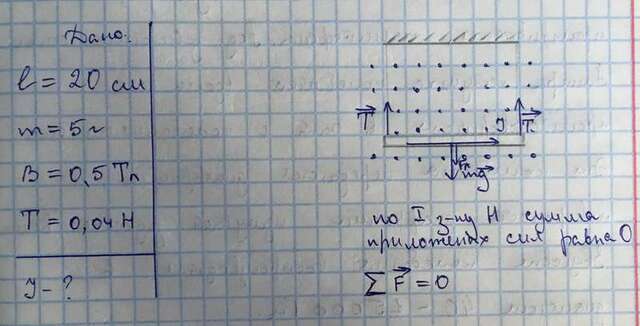 Дано:
l = 20 см
m = 5 г
B = 0,5 Тл
T = 0,04 Н
J - ?
T
J
T
Fл
mg
по I з-ну Н сумма
приложеных сил равна 0
∑ F = 0